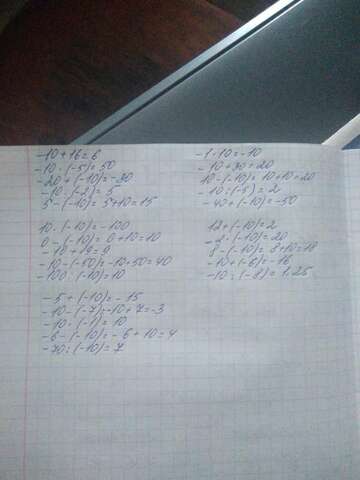 -10+16=6
-10·(-5)=50
-20+(-10)=-30
-10:(-2)=5
5-(-10)=5+10=15
10·(-10)=-100
0-(-10)=0+10=10
-10+19=9
-10-(-50)=-10+50=40
-100:(-10)=10
-5+(-10)=-15
-10-(-7)=-10+7=-3
-10·(-1)=10
-6-(-10)=-6+10=4
-70:(-10)=7
-1·10=-10
-10+30=20
10-(-10)=10+10=20
-10:(-5)=2
-40+(-10)=-50
12+(-10)=2
-2·(-10)=20
8-(-10)=8+10=18
-10+(-6)=-16
-10:(-8)=1.25